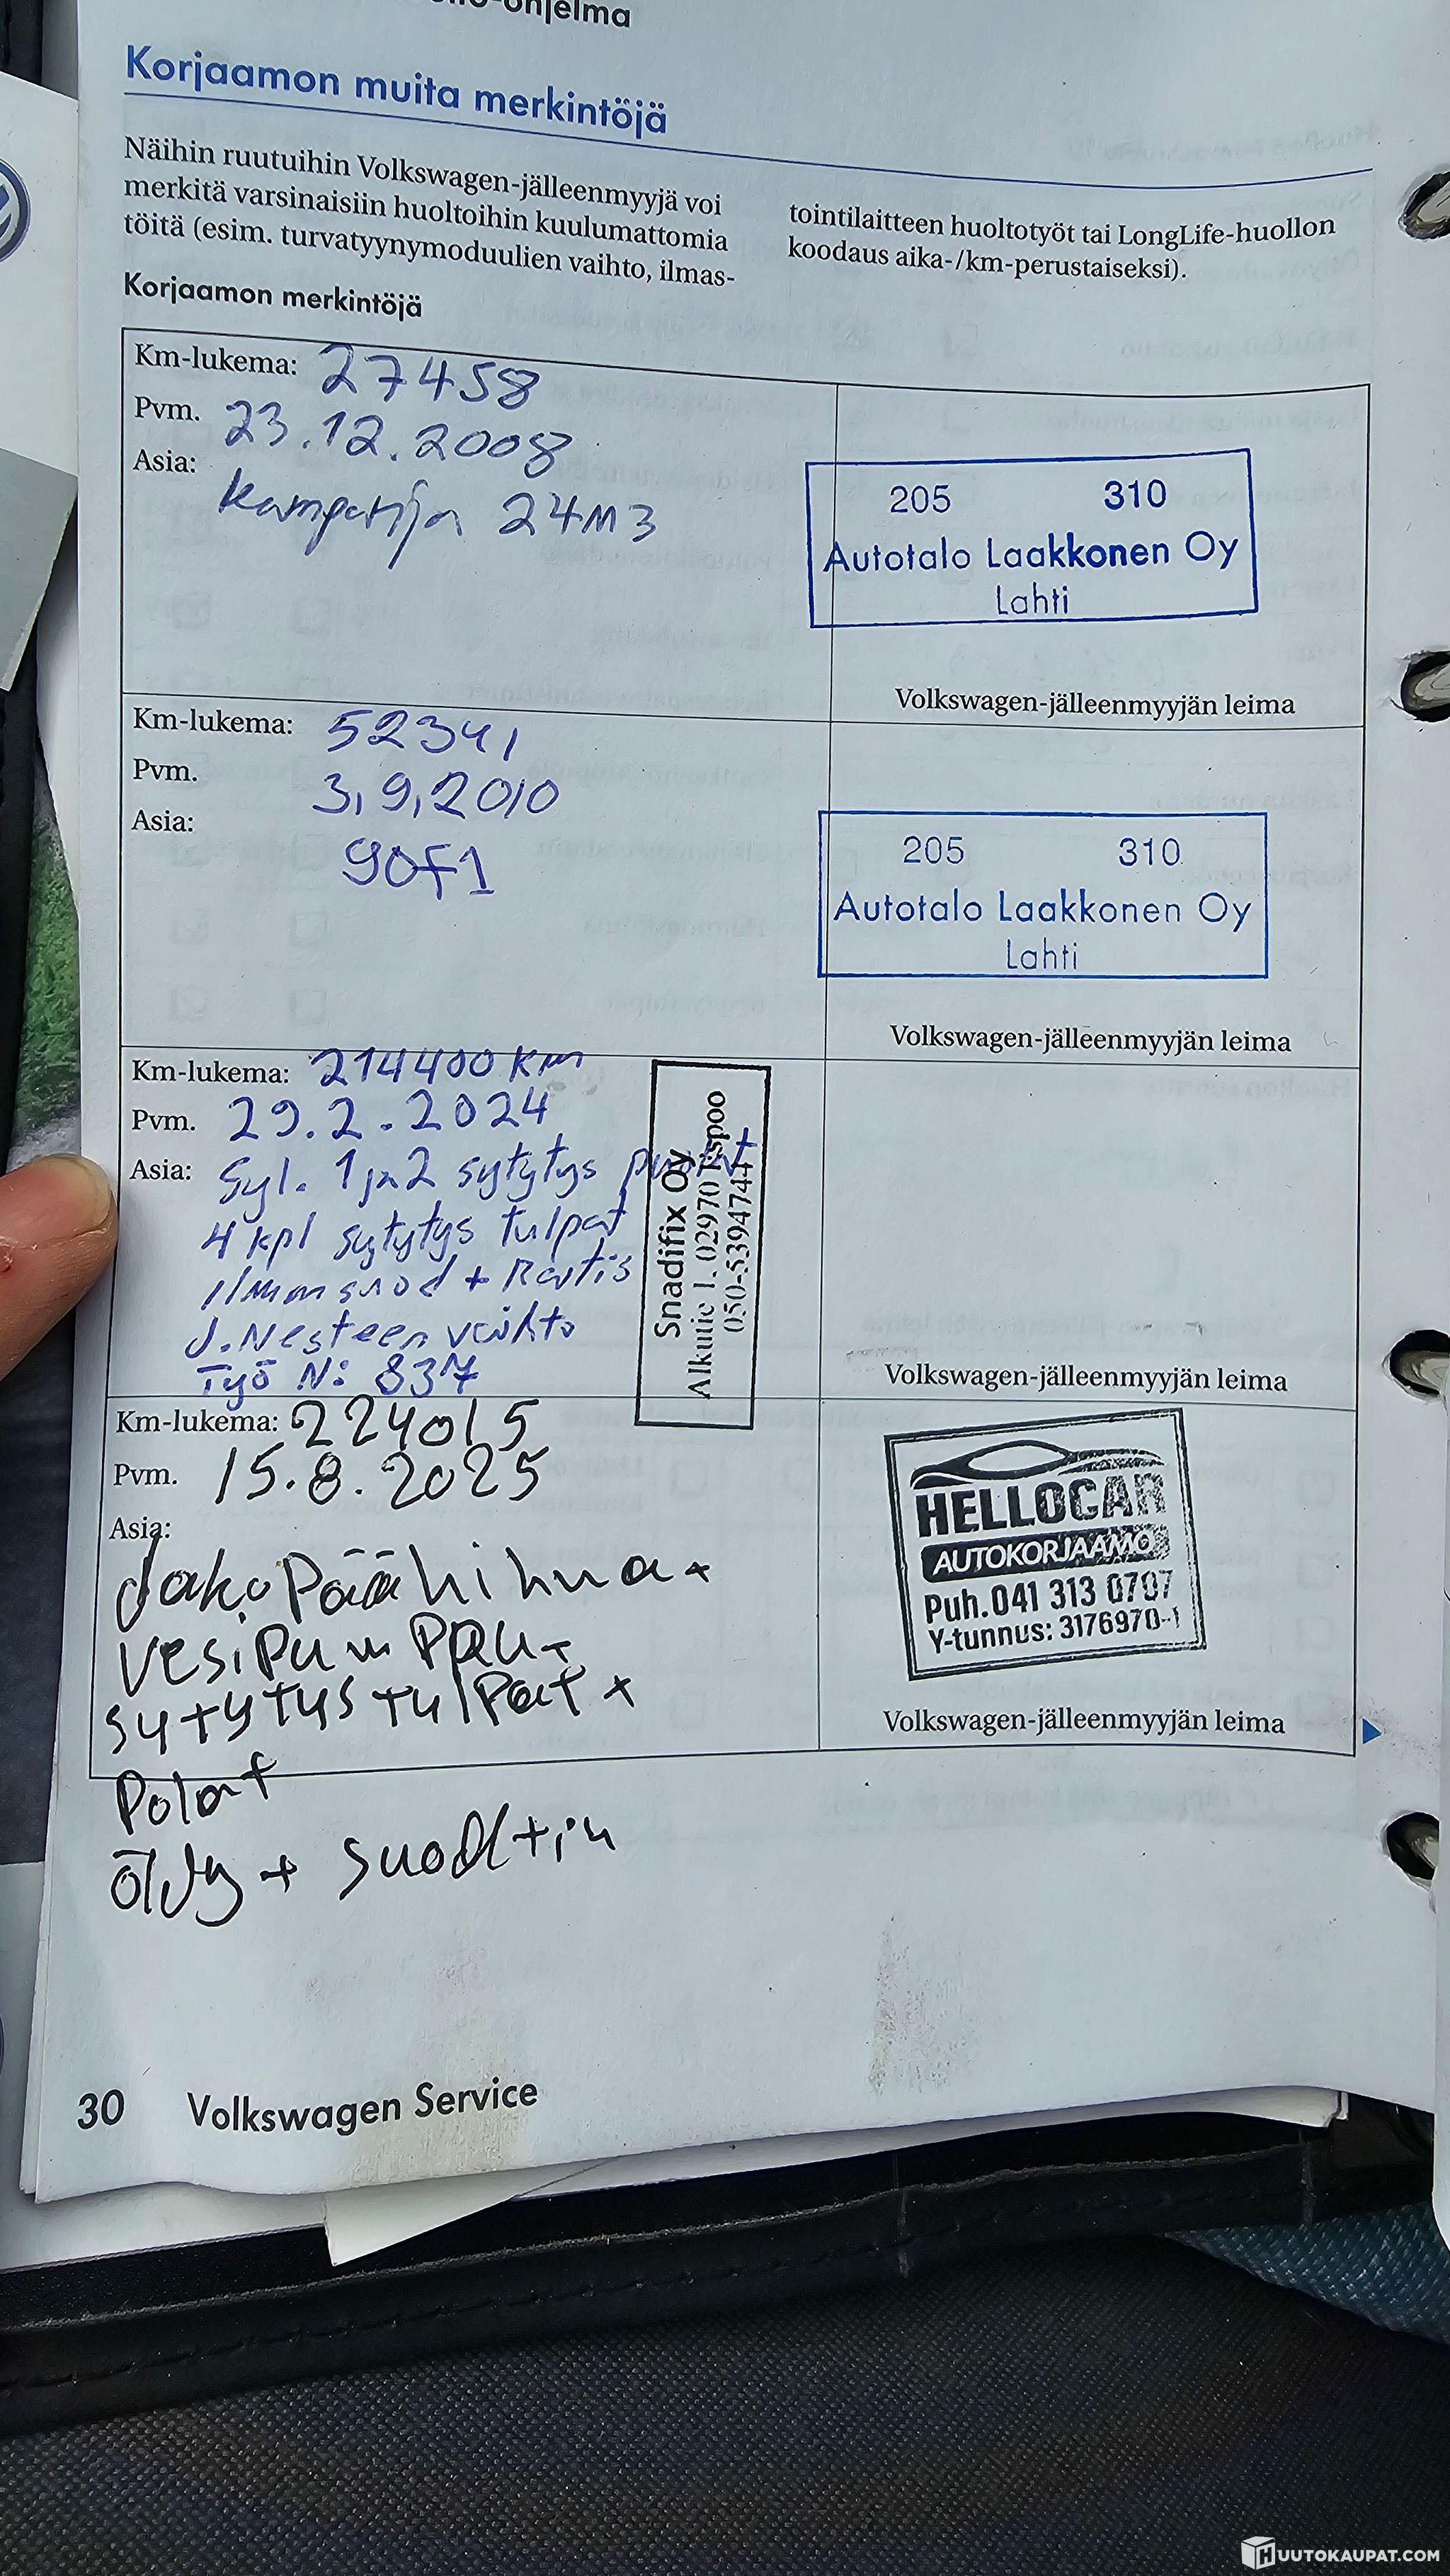 Korjaamon muita merkintöjä
Näihin ruutuihin Volkswagen-jälleenmyyjä voi
merkitä varsinaisiin huoltoihin kuulumattomia
töitä (esim. turvatyynymoduulien vaihto, ilmas-
tointilaitteen huoltotyöt tai LongLife-huollon
koodaus aika-/km-perustaiseksi).
Korjaamon merkintöjä
Km-lukema: 27458
Pvm. 23.12.2008
Asia:
Kampanja 24M3
205 310
Autotalo Laakkonen Oy
Lahti
Volkswagen-jälleenmyyjän leima
Km-lukema: 52341
Pvm. 3,9,2010
Asia:
90F1
205 310
Autotalo Laakkonen Oy
Lahti
Volkswagen-jälleenmyyjän leima
Km-lukema: 214400 Km
Pvm. 29.2.2024
Asia: Syl. 1 ja 2 sytytys puolat
4 kpl sytytys tulpat
suod +
J.Nesteen vaihto
Työ N: 837
Snadifix Oy
Alkutie 1. 02970 Espoo
050-5394744
Volkswagen-jälleenmyyjän leima
Km-lukema: 224015
Pvm. 15.8.2025
Asia:
Jako Päähihna +
vesiPumPPu +
sytytystulPat +
Polat
öljy + suodtin
HELLOCAR
AUTOKORJAAMO
Puh.041 313 0707
Y-tunnus: 3176970-1
Volkswagen-jälleenmyyjän leima
30 Volkswagen Service
HUUTOKAUPAT.COM